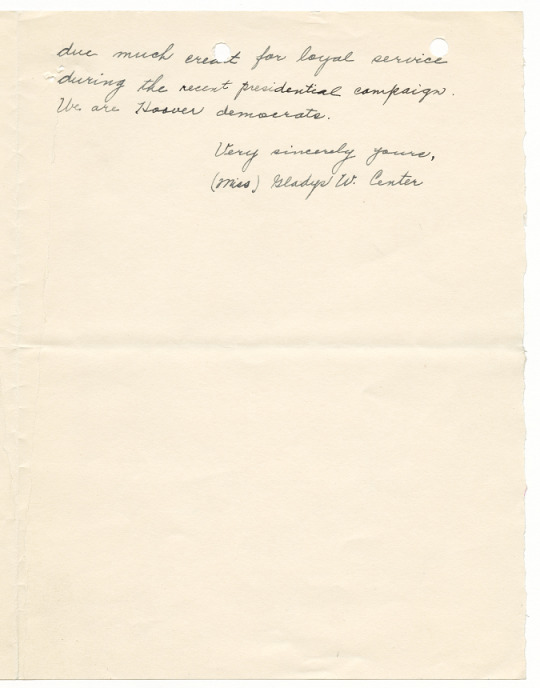 due much credit for loyal service
during the recent presidential campaign.
We are Hoover democrats.
Very sincerely yours,
(Miss) Gladys W. Center